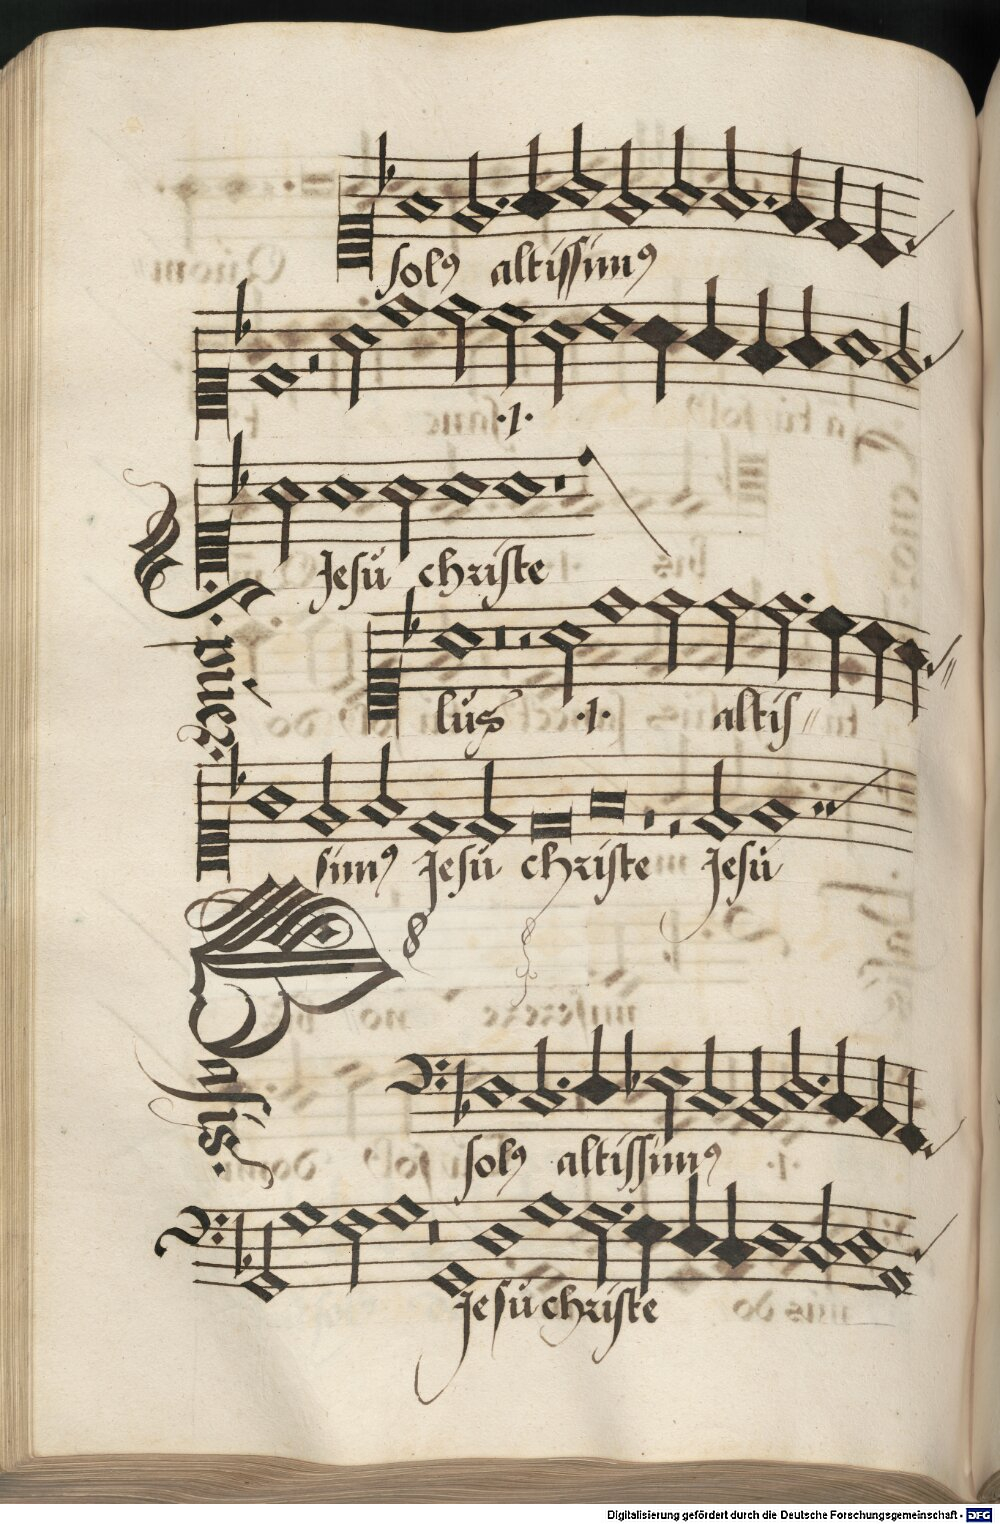 solꝰ altissimꝰ
·1·
Jesu christe
S. puer.
lus ·1· altis
simꝰ Jesu christe Jesu
8
Basis.
solꝰ altissimꝰ
Jesu christe
Digitalisierung gefördert durch die Deutsche Forschungsgemeinschaft - DFG